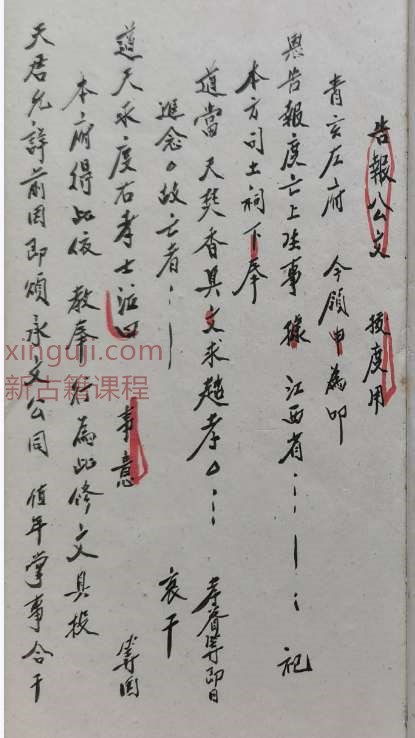 告報公文 拔度用
青亥左府 今領申為叩
恩告報度亡上生事 據 江西省⋮｜⋮ 祀
本方司土祠下奉
道當天焚香具文求超孝○⋮ 孝眷等即日
追念○故亡者⋮｜ 哀干
道天永度右孝士 事意 等因
本府得此依教奉行為此修文具投
天君允詳前因即頒承文公同 值年掌事合干
xinguji.com
新古籍课程